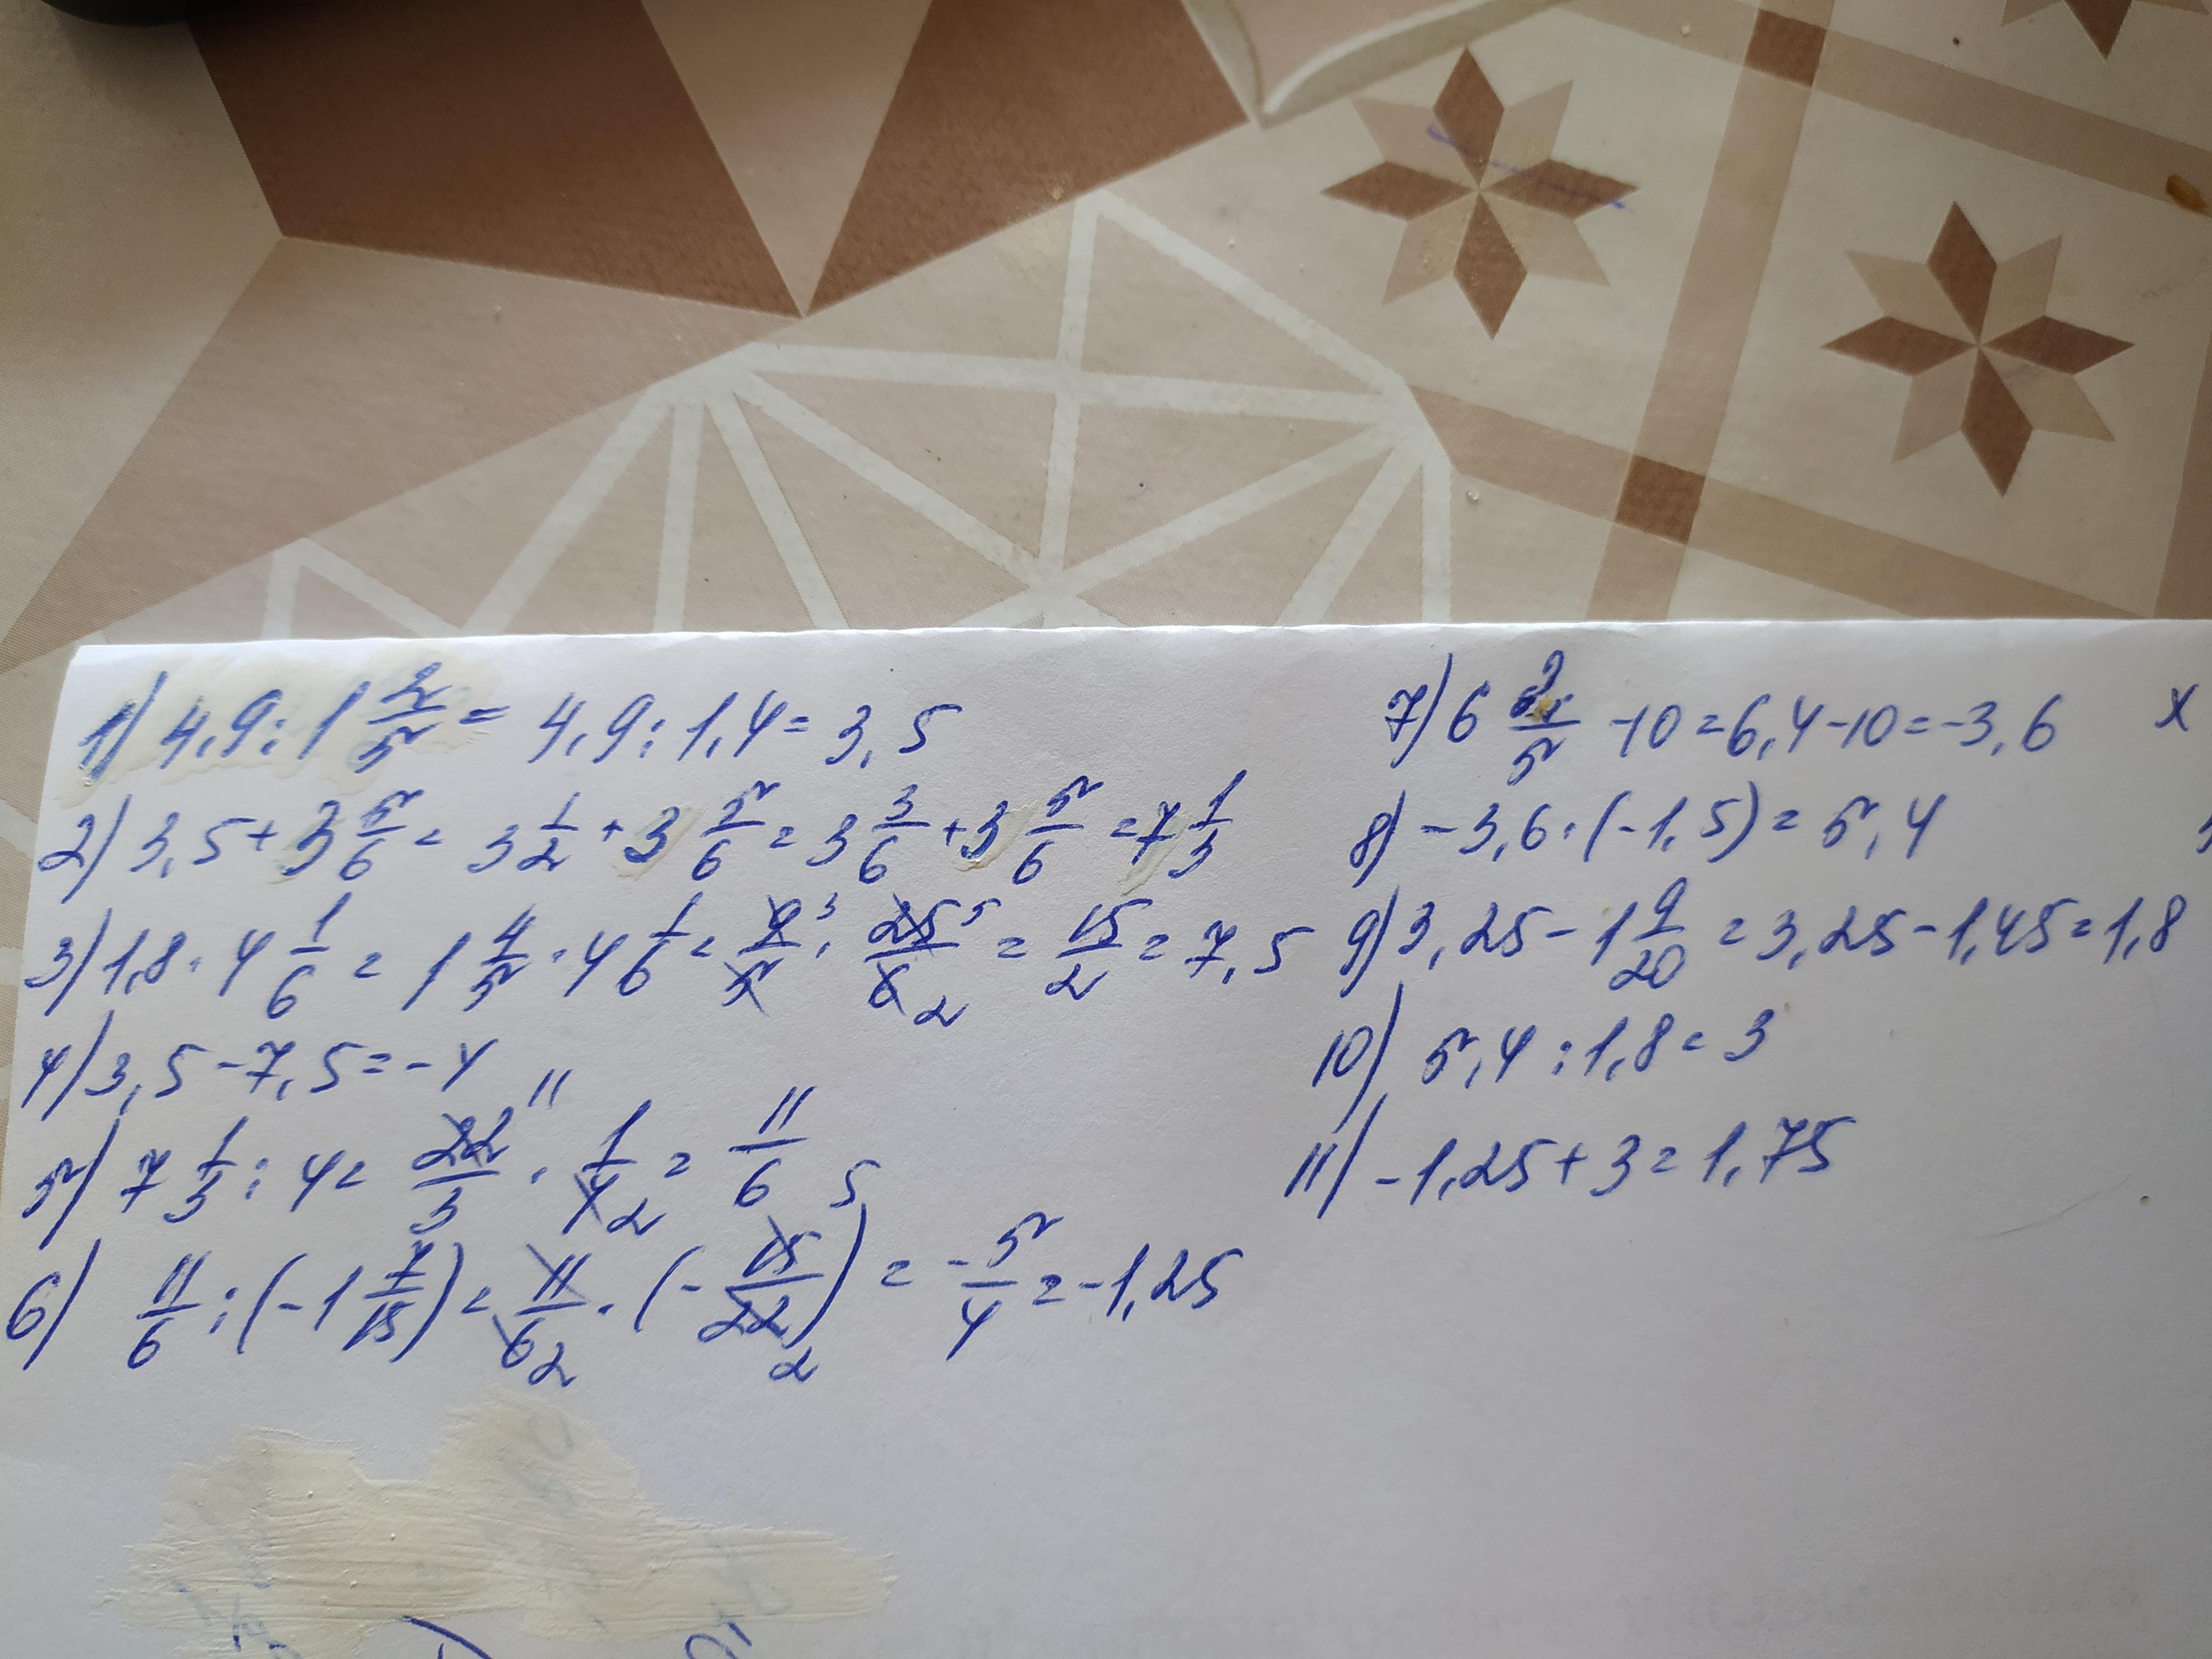 1) 4,9 : 1 2/5 = 4,9 : 1,4 = 3,5
2) 3,5 + 3 5/6 = 3 1/2 + 3 5/6 = 3 3/6 + 3 5/6 = 7 1/3
3) 1,8 · 4 1/6 = 1 4/5 · 4 1/6 = 9 3/5 · 25 5/6 2 = 15/2 = 7,5
4) 3,5 - 7,5 = -4
5) 7 1/3 : 4 = 22 11/3 · 1/4 2 = 11/6
6) 11/6 : (-1 7/15) = 11/6 2 · (- 15 5/22 2) = -5/4 = -1,25
7) 6 2/5 - 10 = 6,4 - 10 = -3,6
8) -3,6 · (-1,5) = 5,4
9) 3,25 - 1 9/20 = 3,25 - 1,45 = 1,8
10) 5,4 : 1,8 = 3
11) -1,25 + 3 = 1,75
x